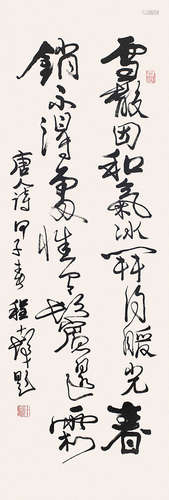 雪散因和氣冰開得暖光春
銷不得處惟有鬢邊霜
唐人詩甲子春程十髮題